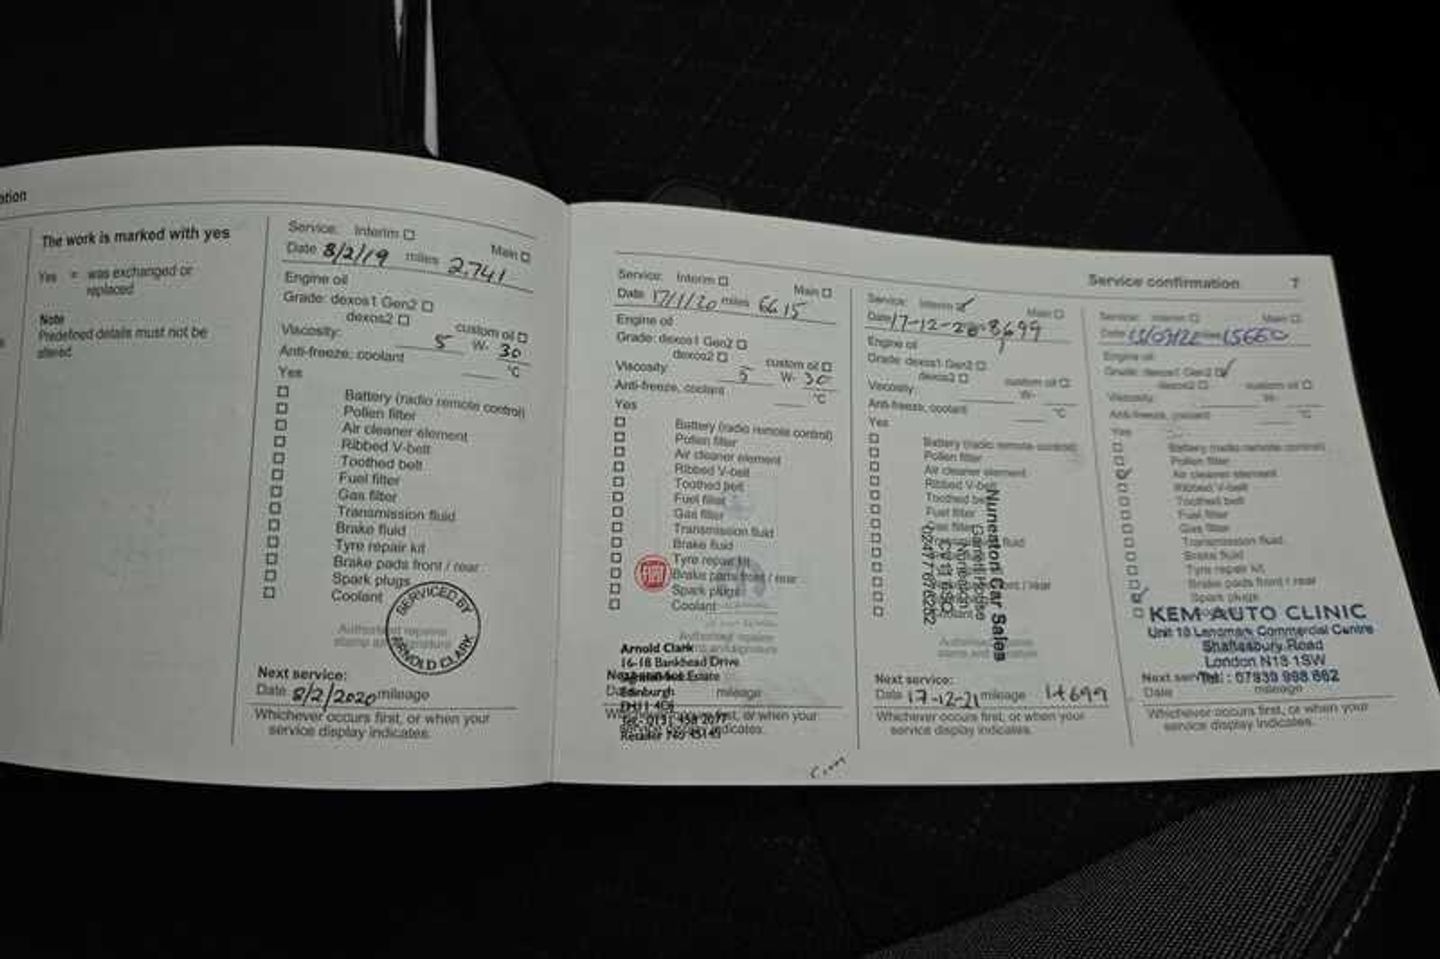 ation
The work is marked with yes
Yes = was exchanged or
replaced
Note
Predefined details must not be
altered
Service: Interim Main
Date 8/2/19 miles 2,741
Engine oil
Grade: dexos1 Gen2
dexos2 custom oil
Viscosity: 5 W- 30
Anti-freeze, coolant °C
Yes
Battery (radio remote control)
Pollen filter
Air cleaner element
Ribbed V-belt
Toothed belt
Fuel filter
Gas filter
Transmission fluid
Brake fluid
Tyre repair kit
Brake pads front / rear
Spark plugs
Coolant
SERVICED BY
ARNOLD CLARK
Next service:
Date 8/2/2020 mileage
Whichever occurs first, or when your
service display indicates.
Service confirmation 7
Service: Interim Main
Date 17/1/20 miles 6615
Engine oil
Grade: dexos1 Gen2
dexos2 custom oil
Viscosity 5 W- 30
Anti-freeze, coolant °C
Yes
Battery (radio remote control)
Pollen filter
Air cleaner element
Ribbed V-belt
Toothed belt
Fuel filter
Gas filter
Transmission fluid
Brake fluid
Tyre repair kit
Brake pads front / rear
Spark plugs
Coolant
FIAT
Arnold Clark
16-18 Bankhead Drive
Estate
Edinburgh
mileage
EH11 4
Tel: 0131 458 2077
Service: Interim
Date 17-12-20 8,699
Engine oil
Grade dexos1 Gen2
dexos2 custom oil
Viscosity W-
Anti-freeze, coolant °C
Yes
Battery (radio remote control)
Pollen filter
Air cleaner element
Ribbed V-belt
Toothed belt
Fuel filter
Nuneaton Car Sales
House
Nuneaton
Next service:
Date 17-12-21 mileage 14699
Whichever occurs first, or when your
service display indicates.
Service: Interim Main
Date
Engine oil
Grade: dexos1 Gen2
dexos2 custom oil
Viscosity: W-
Anti-freeze, coolant °C
Yes
Battery (radio remote control)
Pollen filter
Air cleaner element
Ribbed V-belt
Toothed belt
Fuel filter
Gas filter
Transmission fluid
Brake fluid
Tyre repair kit
Brake pads front / rear
Spark plugs
KEM AUTO CLINIC
Unit 18 Landmark Commercial Centre
Shaftesbury Road
London N18 1SW
Tel: 07939 998 662
Date mileage
Whichever occurs first, or when your
service display indicates.